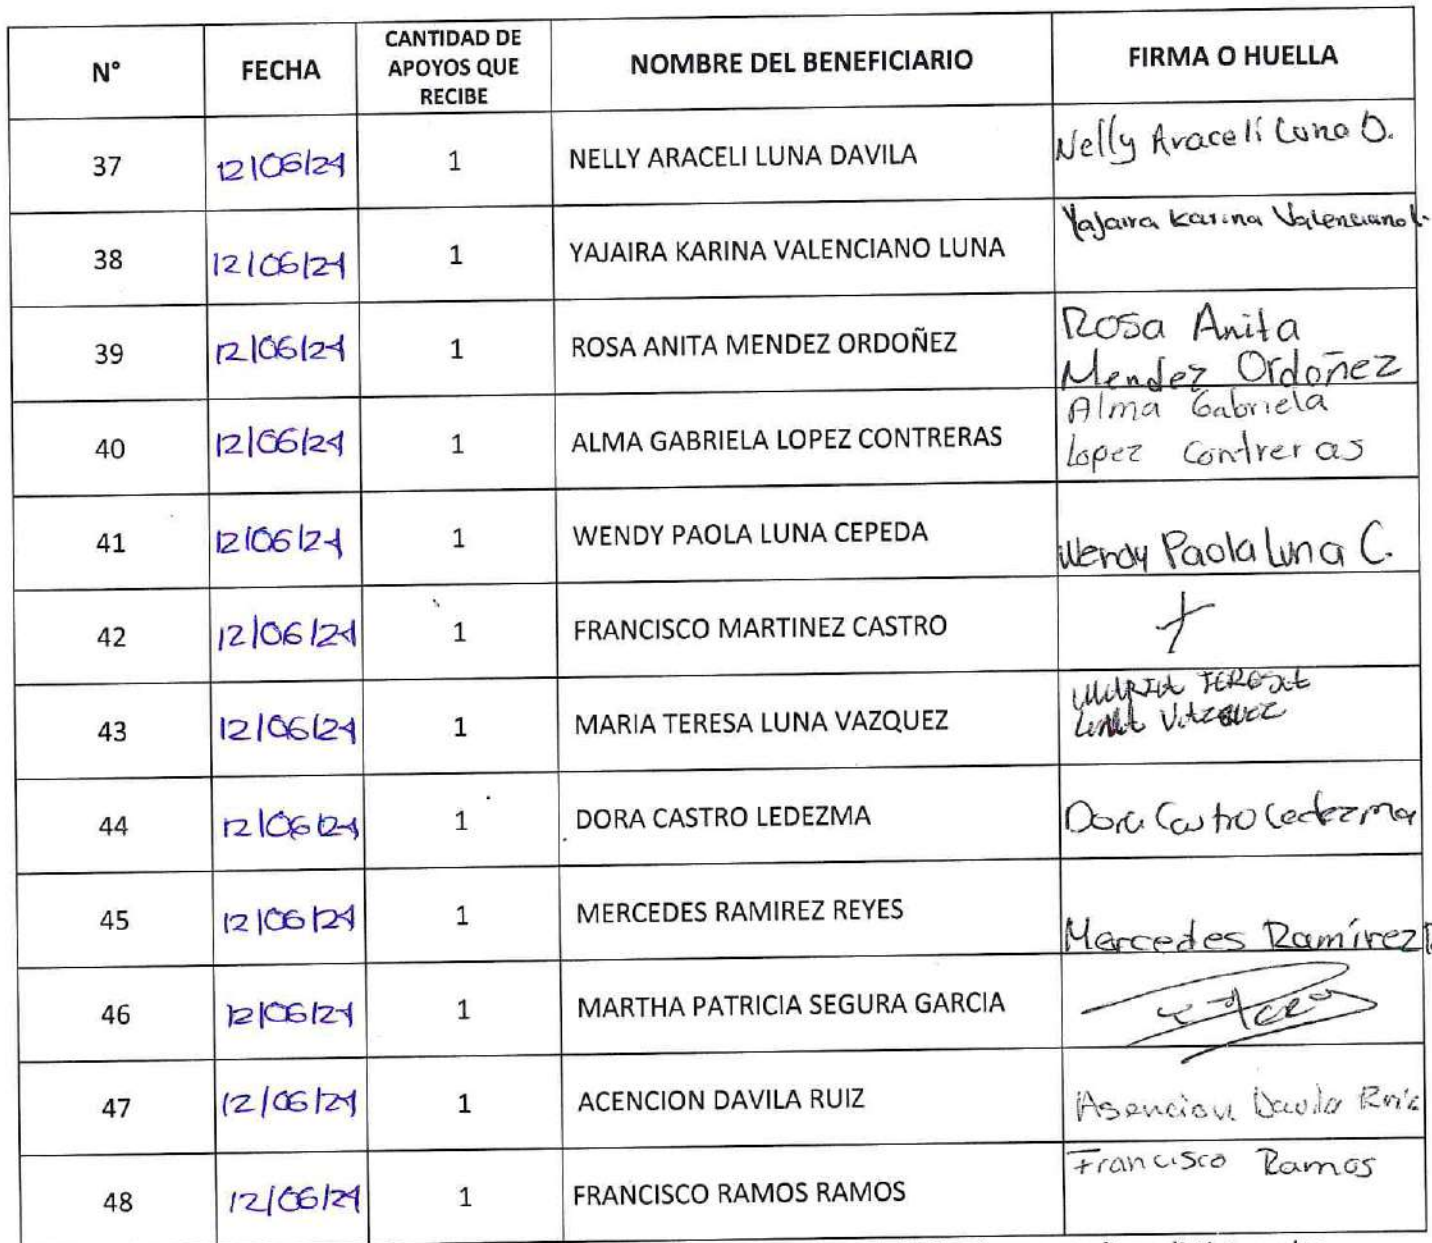 N° FECHA CANTIDAD DE APOYOS QUE RECIBE NOMBRE DEL BENEFICIARIO FIRMA O HUELLA
37 12/06/24 1 NELLY ARACELI LUNA DAVILA Nelly Araceli Luna D.
38 12/06/24 1 YAJAIRA KARINA VALENCIANO LUNA Yajaira Karina Valenciano L.
39 12/06/24 1 ROSA ANITA MENDEZ ORDOÑEZ Rosa Anita
Mendez Ordoñez
40 12/06/24 1 ALMA GABRIELA LOPEZ CONTRERAS Alma Gabriela
Lopez Contreras
41 12/06/24 1 WENDY PAOLA LUNA CEPEDA Wendy Paola Luna C.
42 12/06/24 1 FRANCISCO MARTINEZ CASTRO
43 12/06/24 1 MARIA TERESA LUNA VAZQUEZ MARIA TERESA
LUNA VAZQUEZ
44 12/06/24 1 DORA CASTRO LEDEZMA Dora Castro Ledezma
45 12/06/24 1 MERCEDES RAMIREZ REYES Mercedes Ramírez R
46 12/06/24 1 MARTHA PATRICIA SEGURA GARCIA
47 12/06/24 1 ACENCION DAVILA RUIZ Asencion Davila Ruiz
48 12/06/24 1 FRANCISCO RAMOS RAMOS Francisco Ramos